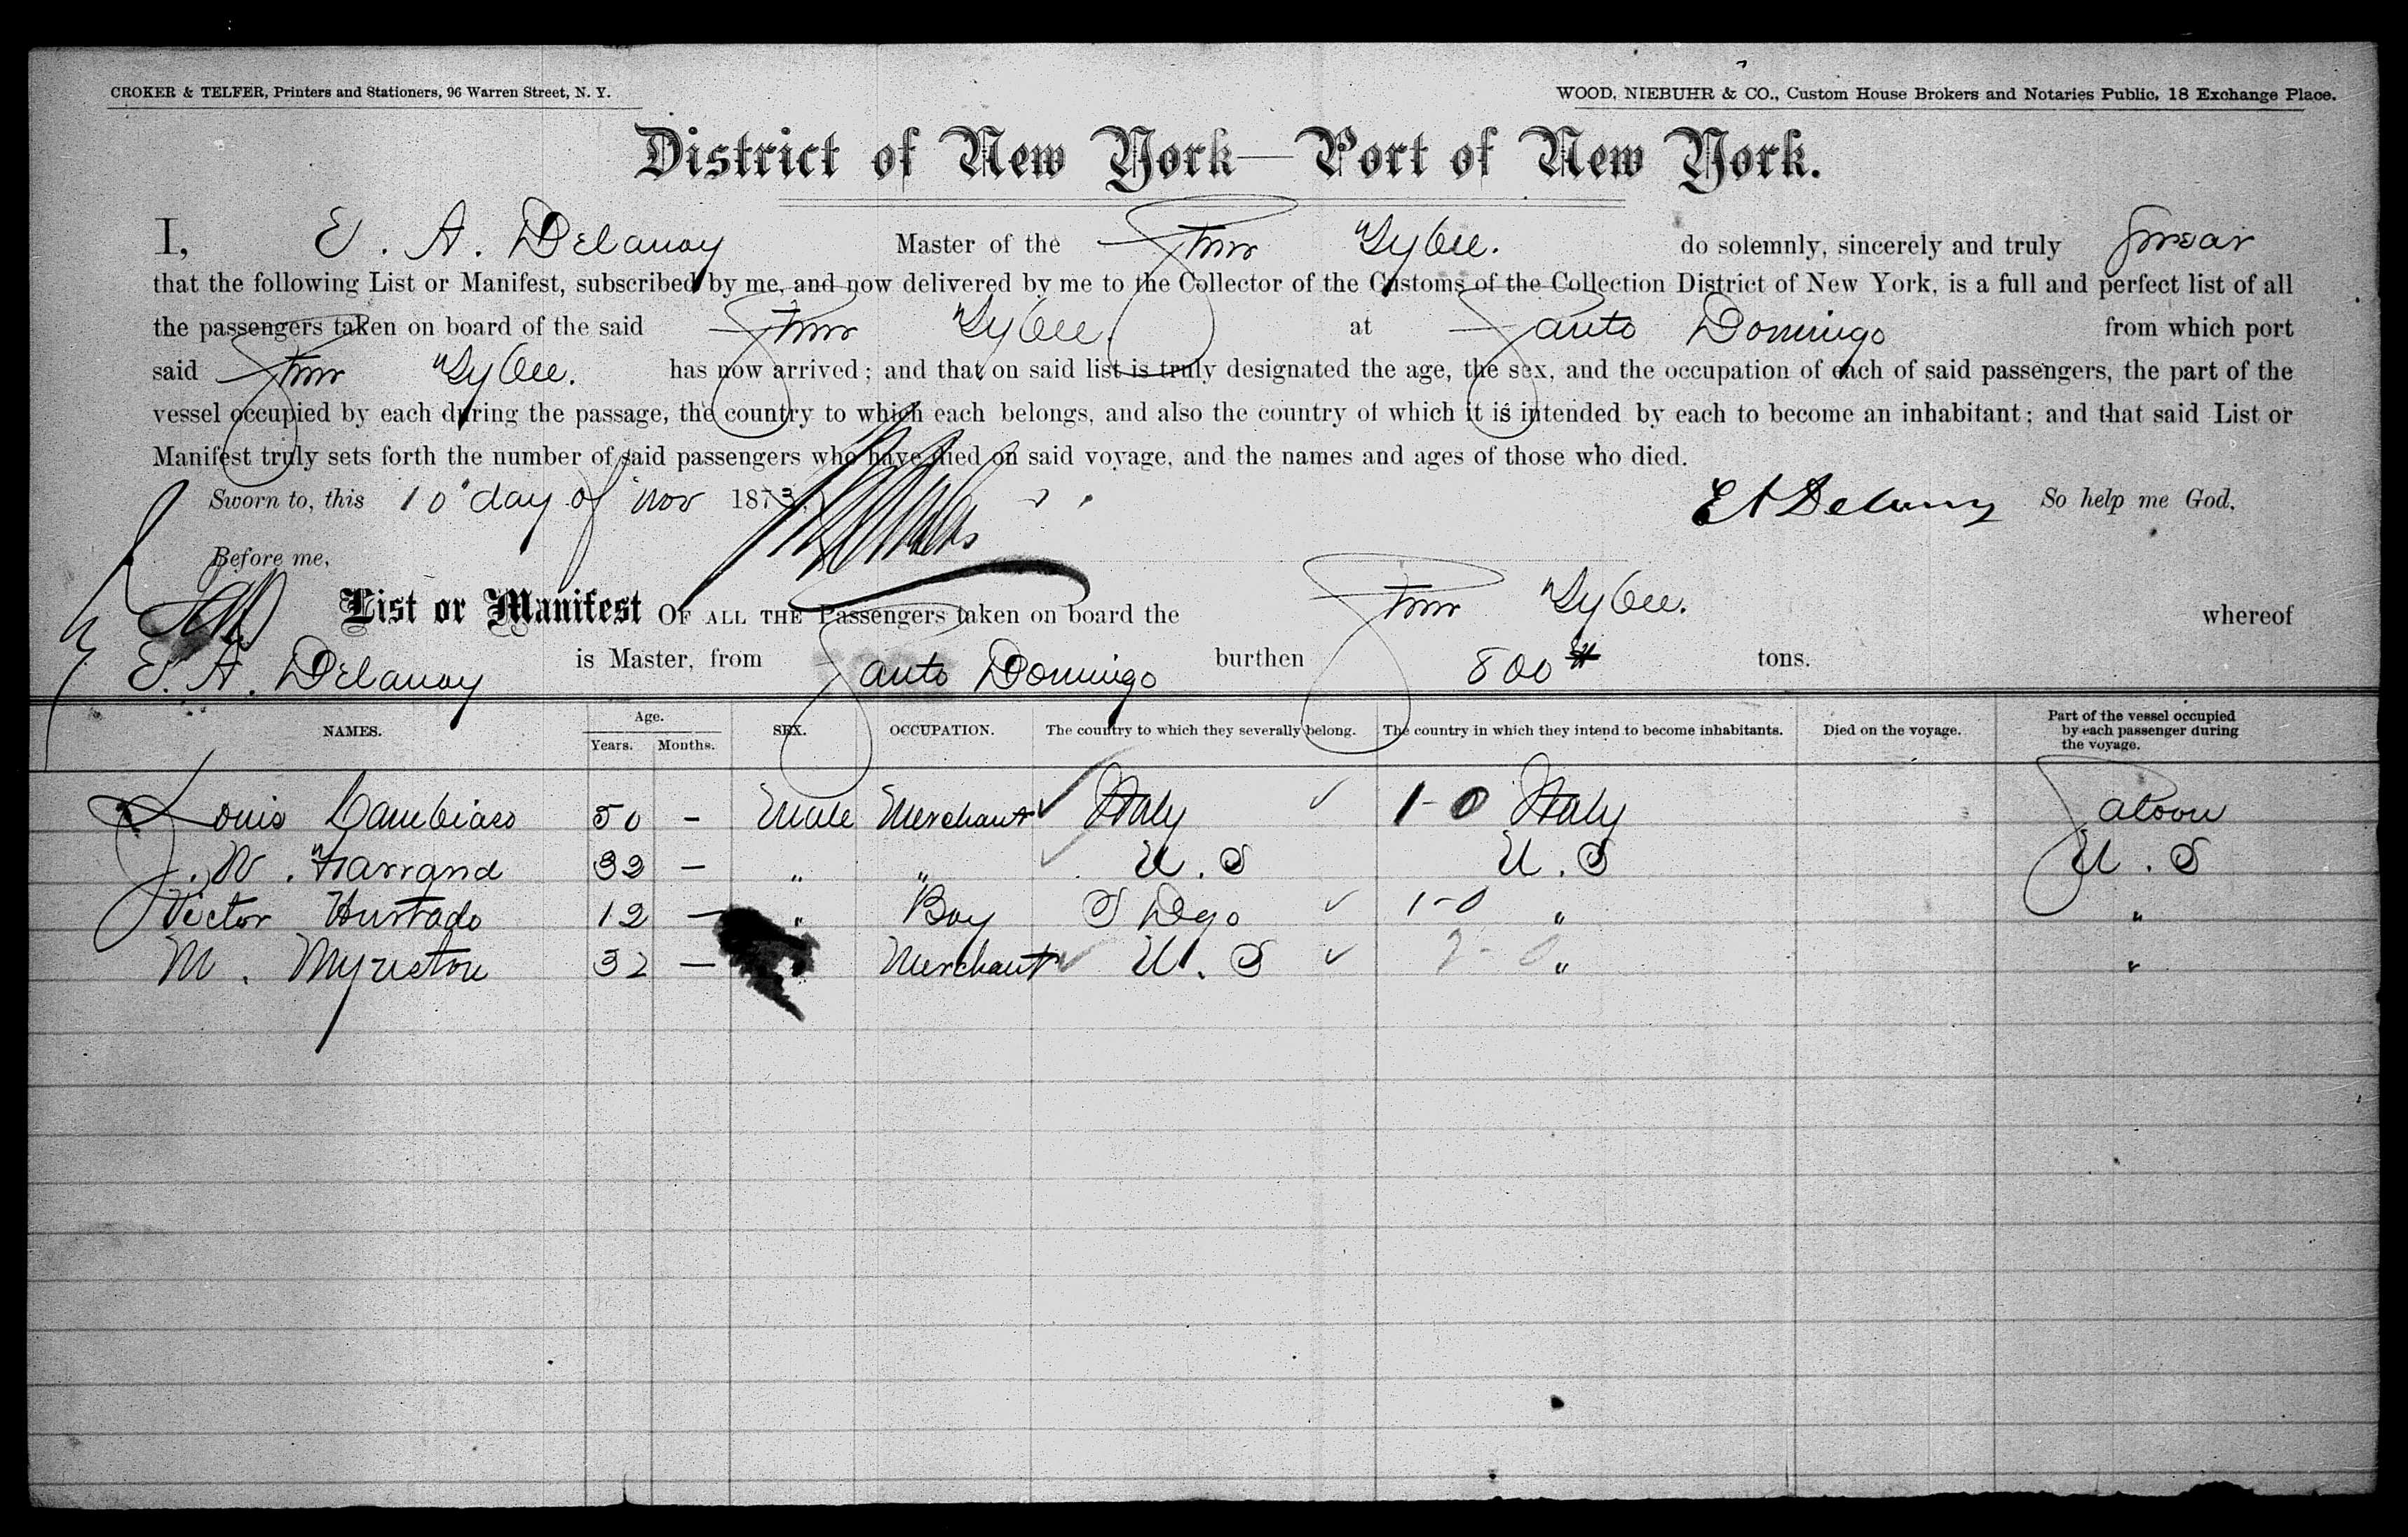 CROKER & TELFER, Printers and Stationers, 96 Warren Street, N. Y.
WOOD, NIEBUHR & CO., Custom House Brokers and Notaries Public, 18 Exchange Place.
District of New York—Port of New York.
I, E. A. Delanoy Master of the Stmr Tybee. do solemnly, sincerely and truly swear
that the following List or Manifest, subscribed by me, and now delivered by me to the Collector of the Customs of the Collection District of New York, is a full and perfect list of all
the passengers taken on board of the said Stmr Tybee. at Santo Domingo from which port
said Stmr Tybee. has now arrived; and that on said list is truly designated the age, the sex, and the occupation of each of said passengers, the part of the
vessel occupied by each during the passage, the country to which each belongs, and also the country of which it is intended by each to become an inhabitant; and that said List or
Manifest truly sets forth the number of said passengers who have died on said voyage, and the names and ages of those who died.
Sworn to, this 10" day of Nov 1873, E A Delanoy So help me God,
Before me,
List or Manifest OF ALL THE Passengers taken on board the Stmr Tybee. whereof
E. A. Delanoy is Master, from Santo Domingo burthen 800 tons.
NAMES. Age. Years. Months. SEX. OCCUPATION. The country to which they severally belong. The country in which they intend to become inhabitants. Died on the voyage. Part of the vessel occupied by each passenger during the voyage.
Louis Cambiaso 50 - Male Merchant Italy 1-0 Italy Saloon
J. W. Farrand 32 — " " U. S U. S U. S
Victor Hurtado 12 — " Boy S Dgo 1-0 " "
M. 32 — Merchant U. S 2-0 " "